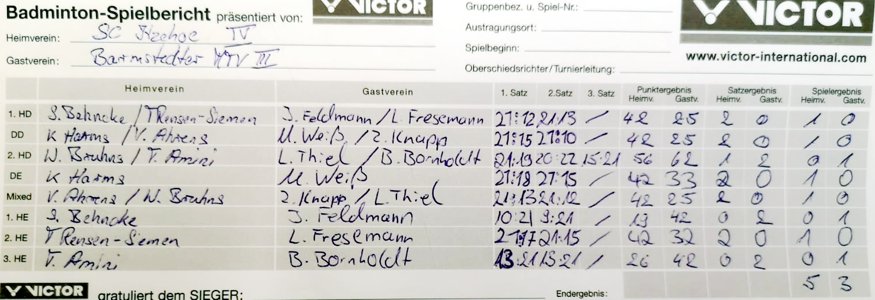 Badminton-Spielbericht präsentiert von: VICTOR
Gruppenbez. u. Spiel-Nr.:
VICTOR
Heimverein: SC Itzehoe IV
Austragungsort:
Gastverein: Barmstedter MTV III
Spielbeginn:
www.victor-international.com
Oberschiedsrichter/Turnierleitung:
Heimverein Gastverein 1. Satz 2. Satz 3. Satz Punktergebnis Satzergebnis Spielergebnis
Heimv. Gastv. Heimv. Gastv. Heimv. Gastv.
1. HD S. Behncke / T Rensen-Siemen J. Feldmann / L. Fresemann 21:12 21:13 / 42 25 2 0 1 0
DD K Harms / V. Ahrens M. Weiß / Z. Knapp 21:15 21:10 / 42 25 2 0 1 0
2. HD N. Bruhns / T. Amini L. Thiel / B. Bornholdt 21:19 20:22 15:21 56 62 1 2 0 1
DE K Harms M. Weiß 21:18 21:15 / 42 33 2 0 1 0
Mixed V. Ahrens / N. Bruhns Z. Knapp / L. Thiel 21:13 21:12 / 42 25 2 0 1 0
1. HE S. Behncke J. Feldmann 10:21 9:21 / 19 42 0 2 0 1
2. HE T Rensen-Siemen L. Fresemann 21:17 21:15 / 42 32 2 0 1 0
3. HE T. Amini B. Bornholdt 13:21 13:21 / 26 42 0 2 0 1
5 3
VICTOR gratuliert dem SIEGER: Endergebnis: